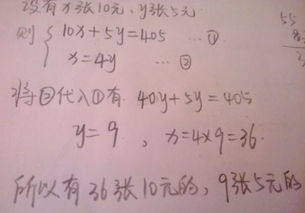 设有x张10元,y张5元
则 { 10x+5y=405 … ①
x=4y … ②
将②代入①有 40y+5y=405
y=9 , x=4×9=36.
所以有36张10元的,9张5元的
55